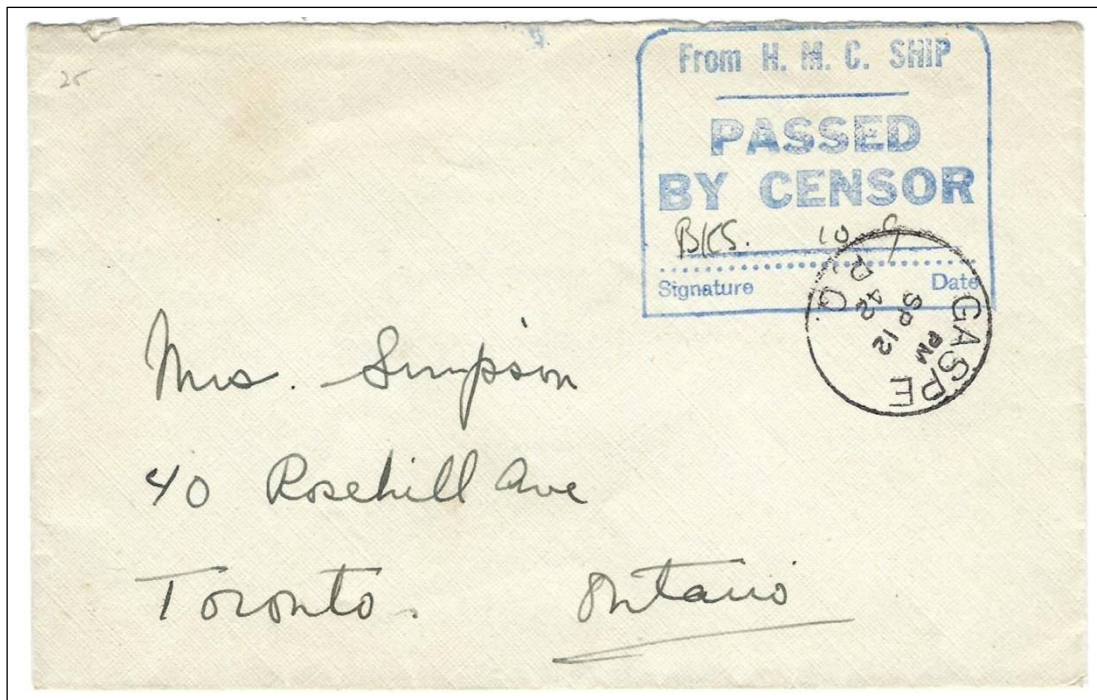 25
From H. M. C. SHIP
PASSED
BY CENSOR
BKS. 10 9
Signature Date
GASPE P.Q.
PM
SP 12
42
Mrs. Simpson
40 Rosehill Ave
Toronto. Ontario